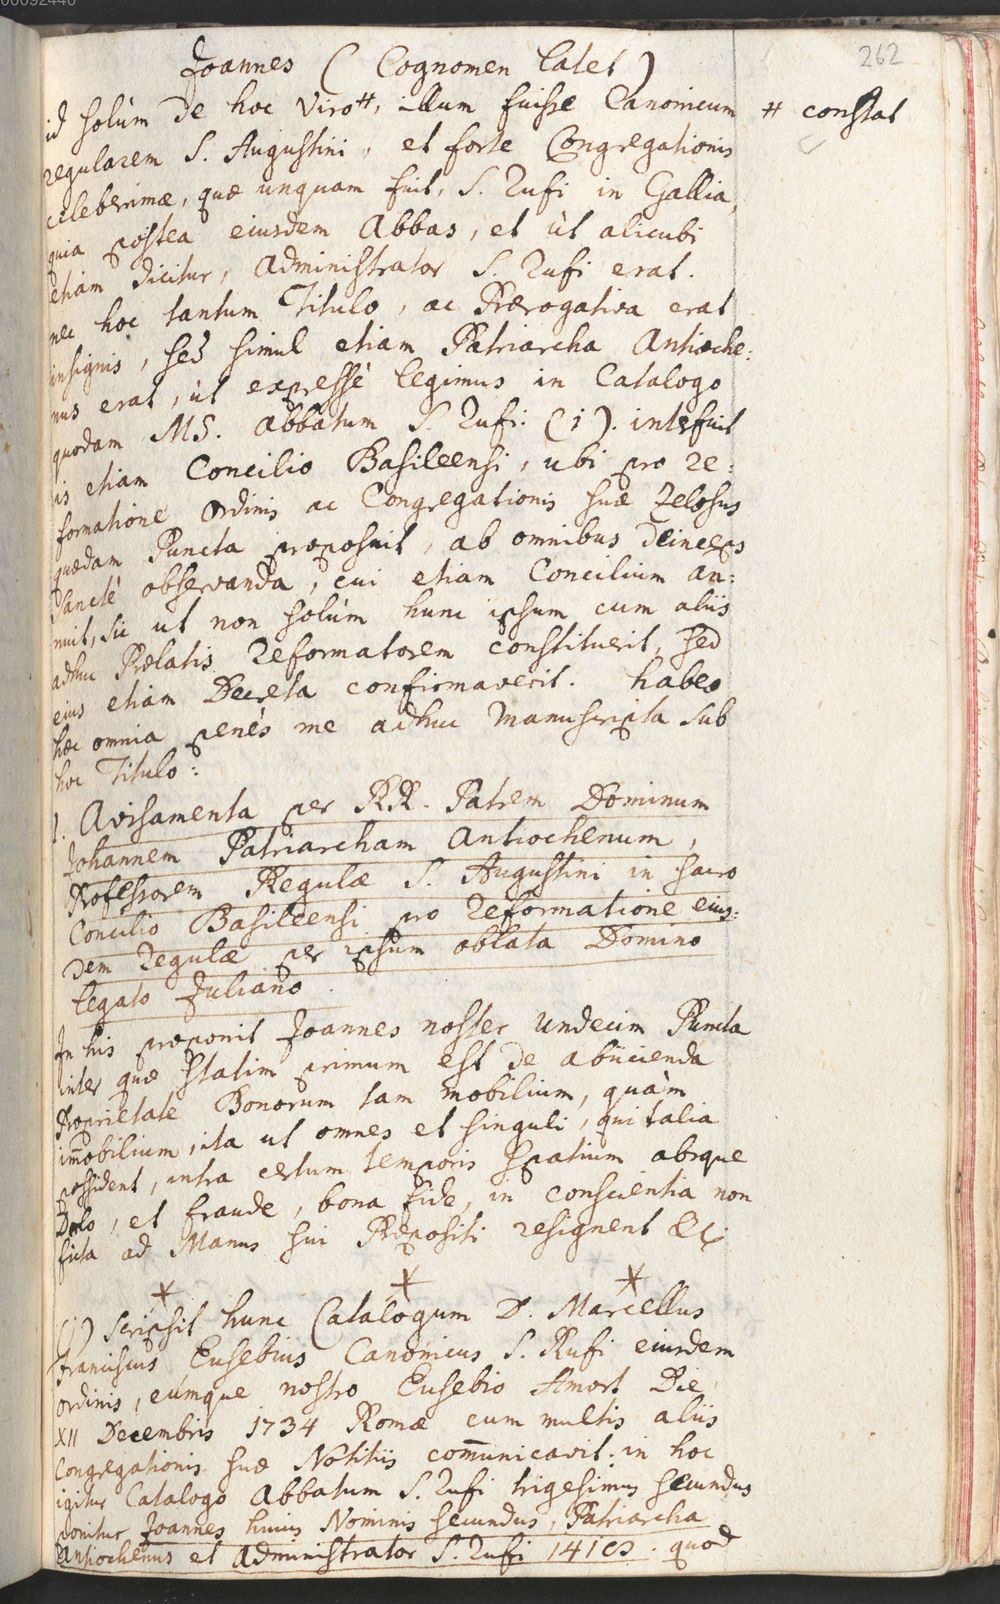 00092440
262
Joannes ( Cognomen latet )
id solùm de hoc Viro #, illum fuisse Canonicum # constat
regularem S. Augustini, et forte Congregationis
celeberrimæ, quæ unquam fuit, S. Rufi in Gallia,
quia postea eiusdem Abbas, et ùt alicubi
etiam dicitur, Administrator S. Rufi erat.
nec hoc tantum Titulo, ac Prærogativa erat
insignis, sed simul etiam Patriarcha Antioche:
nus erat, ùt expressè legimus in Catalogo
quodam MS. Abbatum S. Rufi. (i). interfuit
is etiam Concilio Basileensi, ubi pro re:
formatione Ordinis ac Congregationis suæ zelosus
quædam Puncta proposuit, ab omnibus deinceps
sanctè observanda, cui etiam Concilium an:
nuit, sic ut non solùm hunc ipsum cum aliis
adhuc Prælatis Reformatorem constituerit, sed
eius etiam Decreta confirmaverit. habeo
hæc omnia penès me adhuc Manuscripta sub
hoc Titulo:
1. Avisamenta per RR. Patrem Dominum
Johannem Patriarcham Antiochenum,
Professorem Regulæ S. Augustini in sacro
Concilio Basileensi pro Reformatione eius:
dem Regulæ per ipsum oblata Domino
legato Juliano.
In his proponit Joannes noster undecim Puncta
inter quæ statim primum est de abiicienda
Proprietate Bonorum tam mobilium, quàm
im̄obilium, ita ut omnes et singuli, qui talia
possident, intra certum temporis spatium absque
Dolo, et fraude, bona fide, in conscientia non
ficta ad Manus sui Præpositi resignent &c
* * *
(i) scripsit hunc Catalogum D. Marcellus
Franciscus Eusebius Canonicus S. Rufi eiusdem
ordinis, eùmque nostro Eusebio Amort Die
XII Decembris 1734 Romæ cum multis aliis
Congregationis suæ Notitiis com̄unicavit: in hoc
igitur Catalogo Abbatum S. Rufi trigesimus secundus
ponitur Joannes huius Nominis secundus, Patriarcha
Antiochenus et Administrator S. Rufi quod